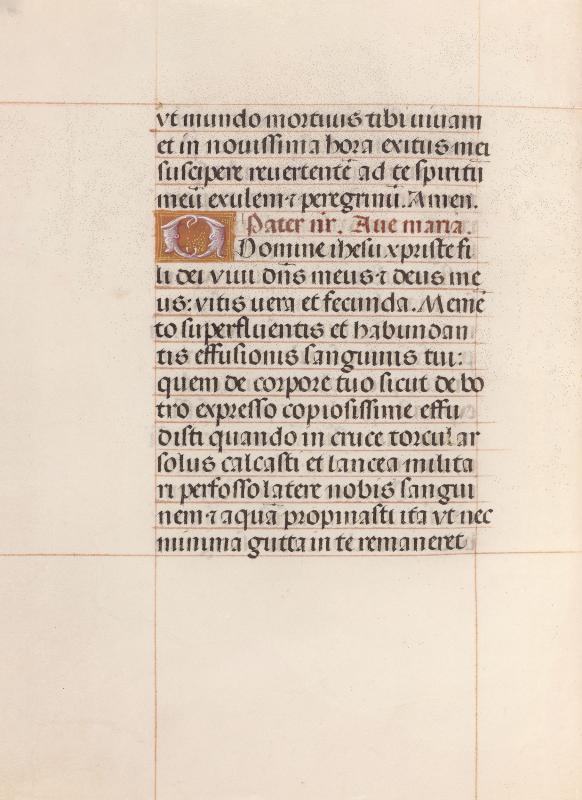 vt mundo mortuus tibi uiuam
et in nouissima hora exitus mei
suscipere reuertentē ad te spiritū
meū exulem ⁊ peregrinū. Amen.
Pater nr̄. Aue maria.
O Domine ihesu xpriste fi
li dei viui dn̄s meus ⁊ deus me
us: vitis uera et fecunda. Memē
to superfluentis et habundan
tis effusionis sanguinis tui:
quem de corpore tuo sicut de bo
tro expresso copiosissime effu
disti quando in cruce torcular
solus calcasti et lancea milita
ri perfosso latere nobis sangui
nem ⁊ aquā propinasti ita vt nec
minima gutta in te remaneret